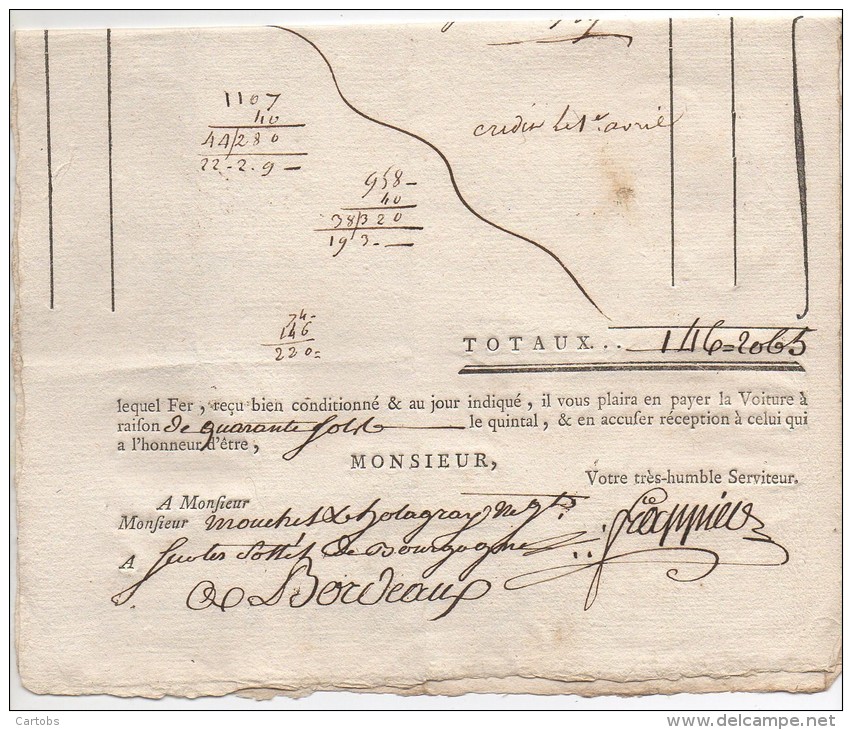 1107
40
44/280
22-2.9-
credit le 1er avril
958-
40
38/320
193.-
74-
146
220=
TOTAUX... 146=2065
lequel Fer, reçu bien conditionné & au jour indiqué, il vous plaira en payer la Voiture à
raiſon de quarante ſols le quintal, & en accuſer réception à celui qui
a l'honneur d'être,
MONSIEUR,
Votre très-humble Serviteur.
A Monſieur
Monſieur
A de Bourgogne
a Bordeaux
Cartobs
http://www.delcampe.net